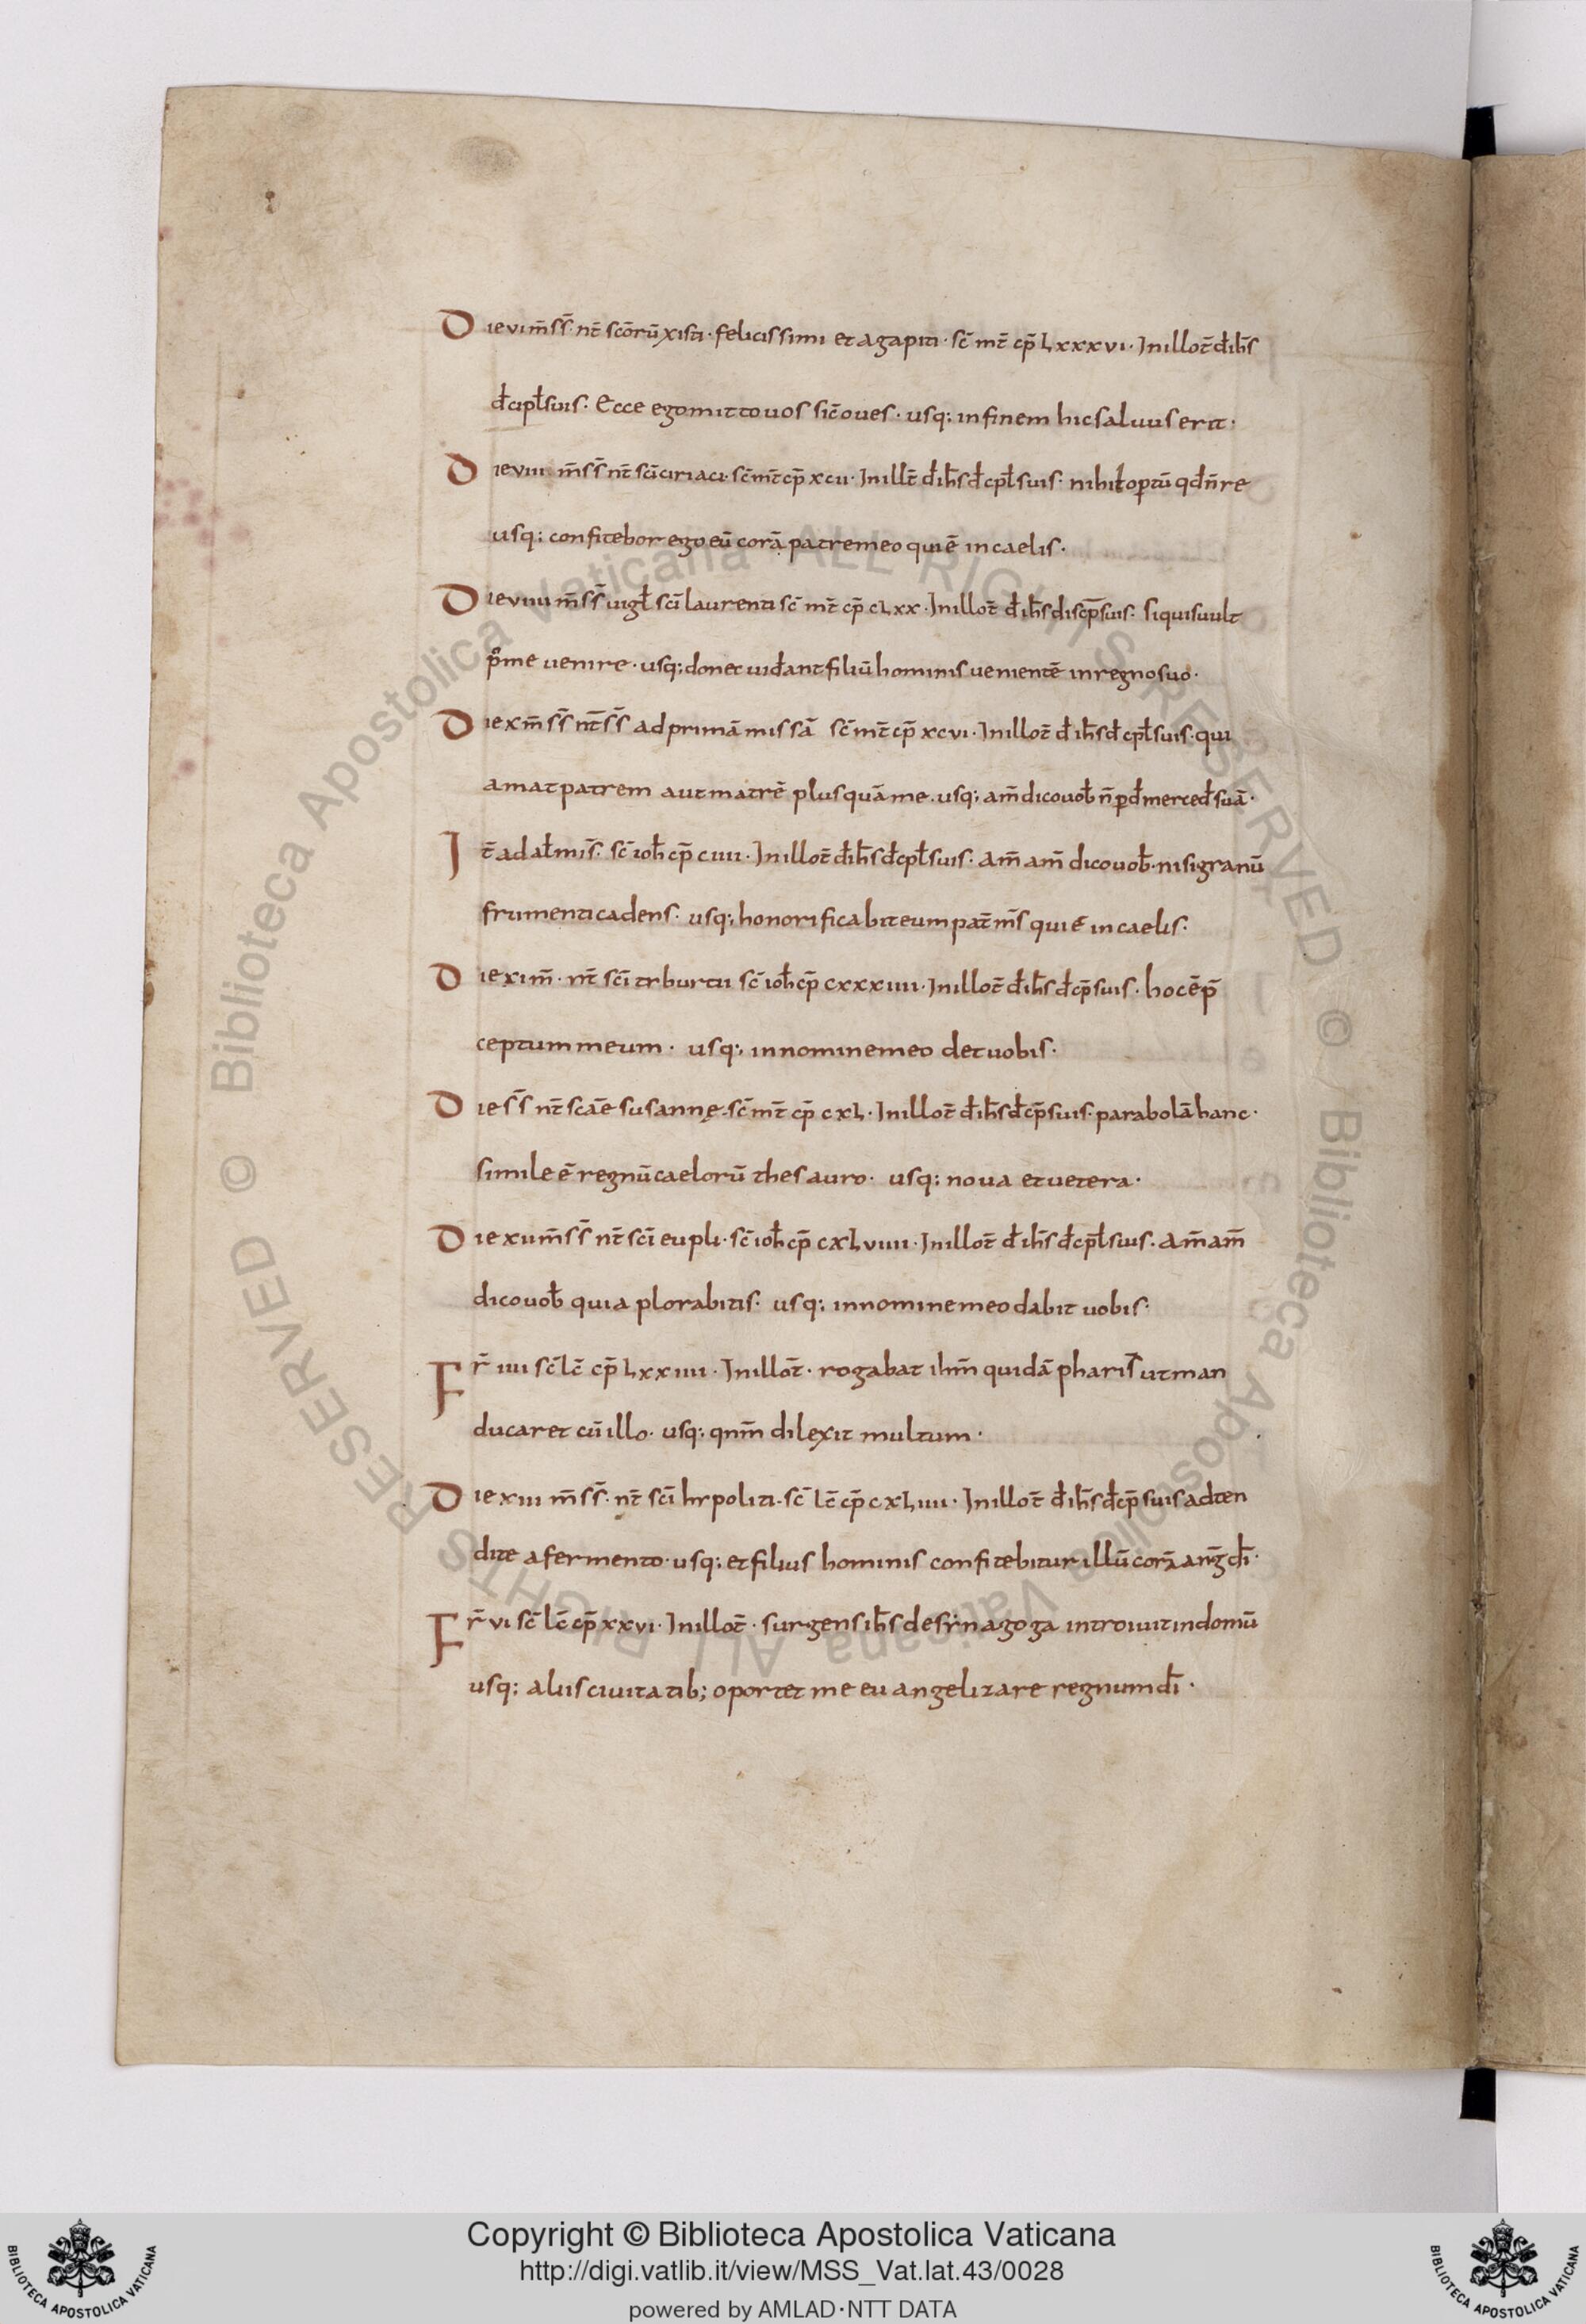 Die vi m̄ s̄s̄ · nt̄ scōrū xisti · felicissimi et agapiti · sc̄ mt̄ cp̄ Lxxxvi · In illo t̄ d̄ ih̄s
d̄cipl̄ suis · Ecce ego mitto uos sic̄ oues · usq; in finem hic saluus erit ·
Die viii m̄ s̄s̄ nt̄ scī ciriaci · sc̄ mt̄ cp̄ xcii · In ill t̄ d̄ ih̄s d̄cpl̄ suis · nihil optū qd n̄ re
usq; confitebor ego eū corā patre meo qui ē in caelis ·
Die viiii m̄ s̄s̄ uigl̄ scī laurenti sc̄ mt̄ cp̄ cLxx · In illo t̄ d̄ ih̄s discp̄ suis · si quis uult
p̊ me uenire · usq; donec uid̄ant filiū hominis uenientē in regno suo ·
Die x m̄ s̄s̄ nt̄ s̄s̄ ad primā missā sc̄ mt̄ cp̄ xcvi · In illo t̄ d̄ ih̄s d̄cpl̄ suis · qui
amat patrem aut matrē plus quā me · usq; am̄ dico uob̄ n̄ pd̄ merced̄ suā ·
It̄ ad al̄ mis̄ · sc̄ ioh̄ cp̄ ciiii · In illo t̄ d̄ ih̄s d̄cpl̄ suis · am̄ am̄ dico uob̄ · nisi granū
frumenti cadens · usq; honorificabit eum pat̄ m̄s qui ē in caelis ·
Die xi m̄ · nt̄ scī tyburtii sc̄ ioh̄ cp̄ cxxxiiii · In illo t̄ d̄ ih̄s d̄cp̄ suis · hoc ē p̄
ceptum meum · usq; in nomine meo det uobis ·
Die s̄s̄ nt̄ scāe susannę · sc̄ mt̄ cp̄ cxL · In illo t̄ d̄ ih̄s d̄cp̄ suis · parabolā hanc ·
simile ē regnū caelorū thesauro · usq; noua et uetera ·
Die xii m̄ s̄s̄ nt̄ scī eupli · sc̄ ioh̄ cp̄ cxLviiii · In illo t̄ d̄ ih̄s d̄cpl̄ suis · am̄ am̄
dico uob̄ quia plorabitis · usq; in nomine meo dabit uobis ·
Fr̄ iiii sc̄ lc̄ cp̄ Lxxiiii · In illo t̄ · rogabat ihm̄ quidā pharis̄ ut man
ducaret cū illo · usq; qnm̄ dilexit multum ·
Die xiii m̄ s̄s̄ · nt̄ scī hypoliti · sc̄ lc̄ cp̄ cxLiiii · In illo t̄ d̄ ih̄s d̄cp̄ suis adten
dite a fermento · usq; et filius hominis confitebitur illū corā ang̅ dī ·
Fr̄ vi sc̄ lc̄ cp̄ xxvi · In illo t̄ · surgens ih̄s de synagoga introiuit in domū
usq; aliis ciuitatib; oportet me euangelizare regnum dī ·
Copyright © Biblioteca Apostolica Vaticana
http://digi.vatlib.it/view/MSS_Vat.lat.43/0028
powered by AMLAD·NTT DATA